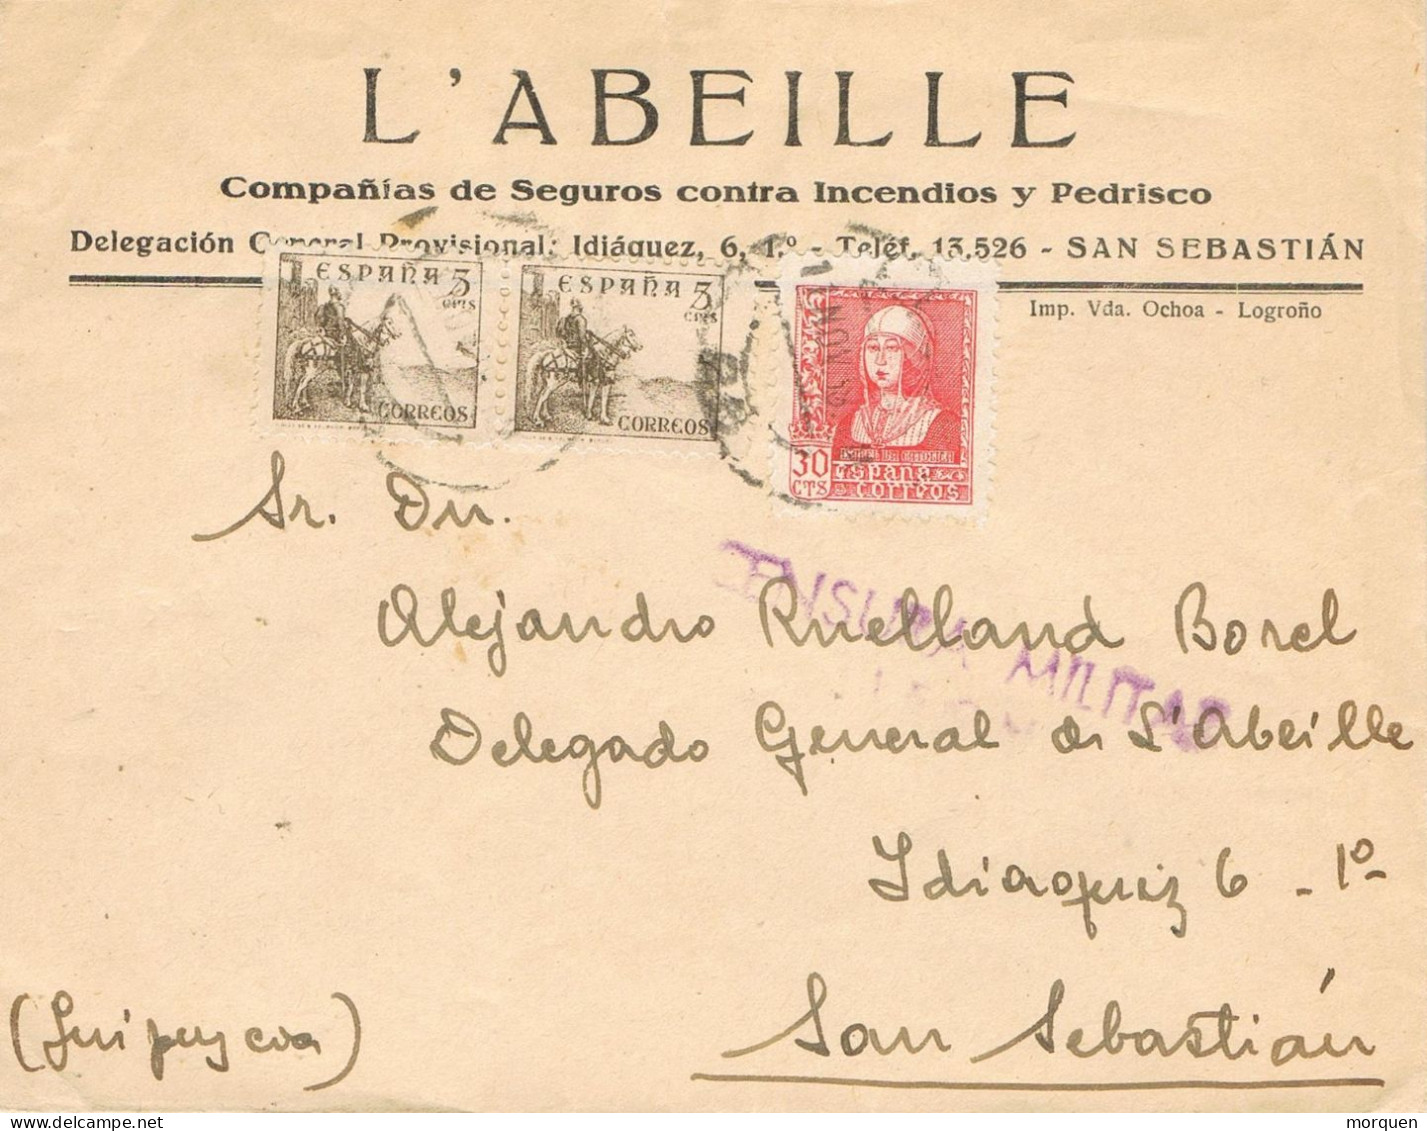 L'ABEILLE
Compañías de Seguros contra Incendios y Pedrisco
Delegación General Provisional: Idiáquez, 6, 1.º - Teléf. 13.526 - SAN SEBASTIÁN
Imp. Vda. Ochoa - Logroño
ESPAÑA 5 CTS
CORREOS
ESPAÑA 5 CTS
CORREOS
ISABEL LA CATOLICA
30 CTS
ESPAÑA
CORREOS
Sr. Dn.
CENSURA MILITAR
Alejandro Ruelland Borel
Delegado General de L'Abeille
Idiaquez 6 - 1º
(Guipuzcoa)
San Sebastián
morquen